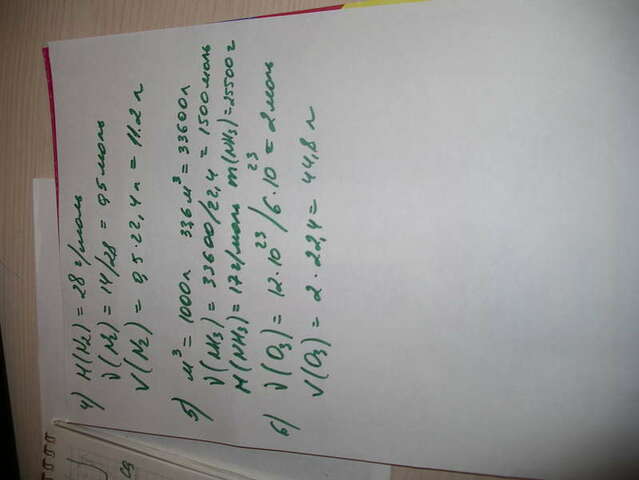 4) M(N₂) = 28 г/моль
ν(N₂) = 14/28 = 0,5 моль
V(N₂) = 0,5·22,4 л = 11.2 л
5) м³ = 1000 л 33,6 м³ = 33600 л
ν(NH3) = 33600/22,4 = 1500 моль
M(NH3) = 17 г/моль m(NH3) = 25500 г
6) ν(O₃) = 12·10²³/6·10²³ = 2 моль
V(O₃) = 2·22,4 = 44,8 л